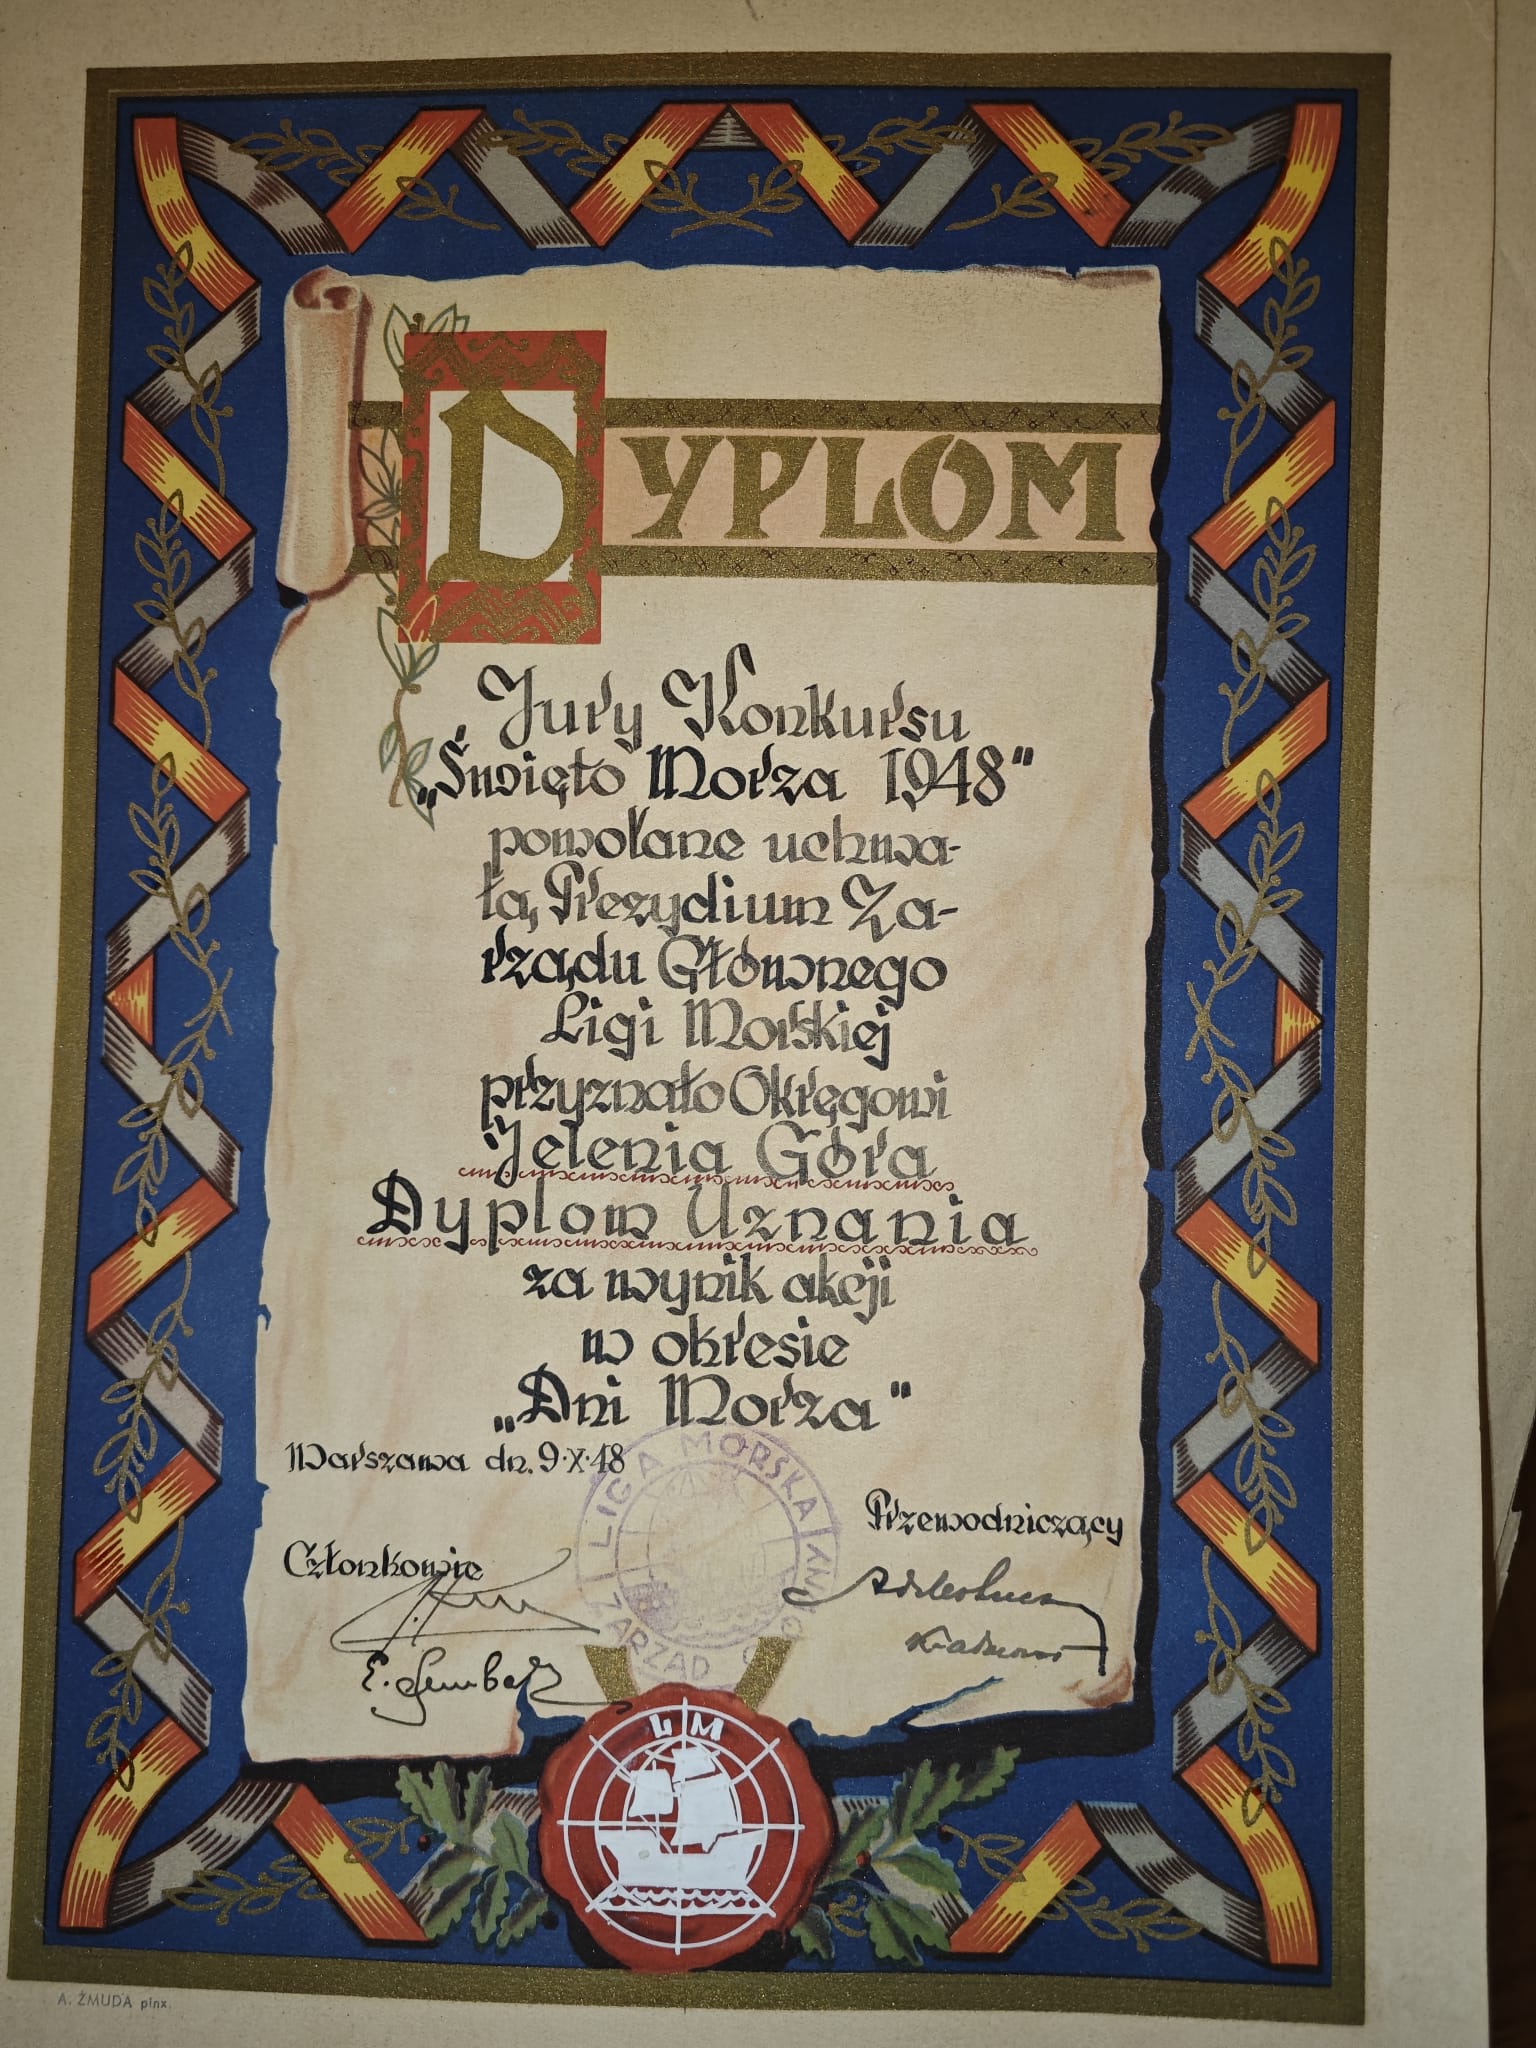 DYPLOM
Jury Konkursu
„Święto Morza 1948"
powołane uchwa-
łą Prezydium Za-
rządu Głównego
Ligi Morskiej
przyznało Okręgowi
Jelenia Góra
Dyplom Uznania
za wynik akcji
w okresie
„Dni Morza"
Warszawa dn. 9.X.48
LIGA MORSKA
ZARZĄD
Przewodniczący
Członkowie
LM
A. ŻMUDA pinx.